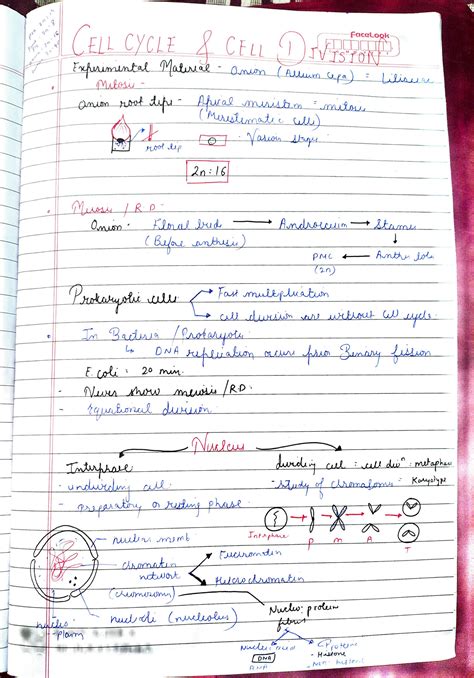 FaceLook
CELL CYCLE & CELL DIVISION
Experimental Material - onion (Allium cepa) = Liliaceae
Mitosis -
onion root tips - Apical meristem = mitosis
(Meristematic cells)
root tip
Various stages
2n = 16
Meiosis / R.D -
Onion - Floral buds → Androecium → Stamen
(Before anthesis)
PMC ← Anther lobe
(2n)
Prokaryotic cells
Fast multiplication
cell division are without cell cycle
In Bacteria / Prokaryote
DNA replication occurs prior Binary fission
E. coli : 20 min.
- Never show meiosis / RD.
- equational division
Nucleus
Interphase
dividing cell = cell divn : metaphase
- undividing cell
- study of chromosomes = Karyotype
- preparatory or resting phase
Interphase P M A T
nuclear memb
chromatin network
Euchromatin
Heterochromatin
(chromosomes)
Nucleo protein fibres
nucleoli (nucleolus)
nucleoplasm
Nucleic acid
DNA
RNA
Proteins
- Histone
- Non-histone